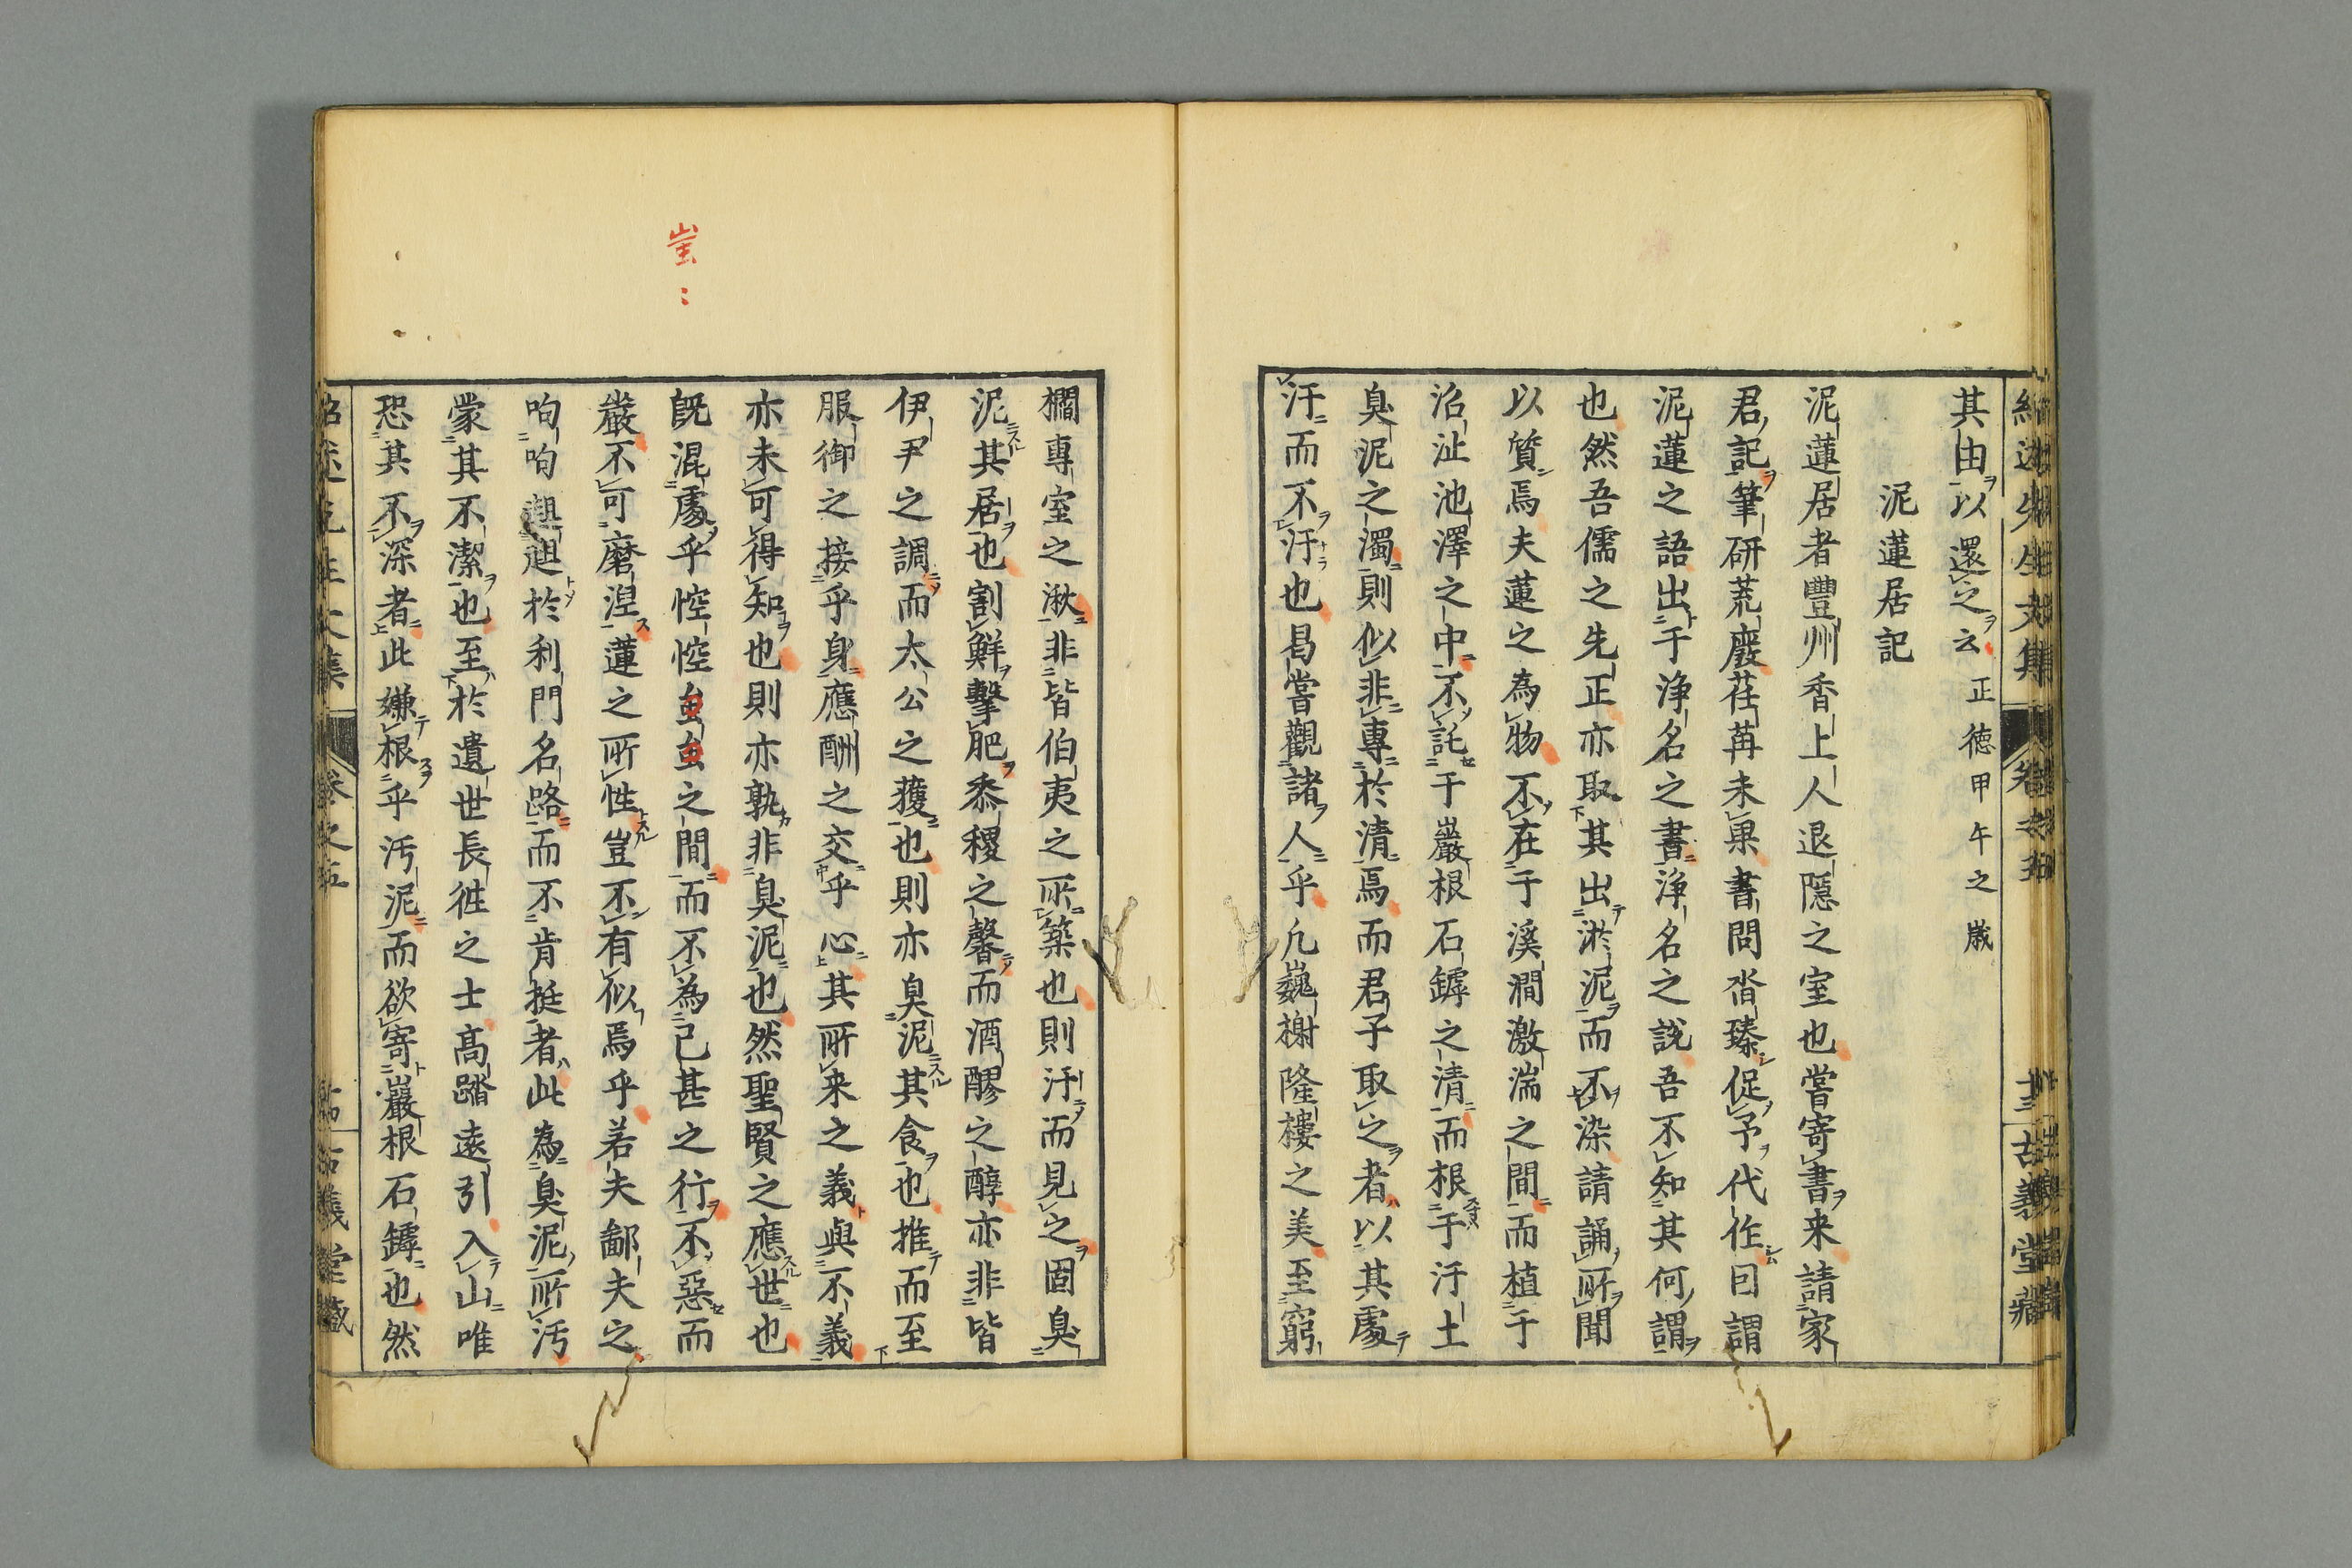 其由以還之云正德甲午之歲
泥蓮居記
泥蓮居者豐州香上人退隱之室也嘗寄書来請家
君記筆研荒廢荏苒未果書問沓臻促予代作曰謂
泥蓮之語出于淨名之書淨名之說吾不知其何謂
也然吾儒之先正亦取其出淤泥而不染請誦所聞
以質焉夫蓮之為物不在于溪澗激湍之間而植于
沼沚池澤之中不託于巖根石罅之清而根于汙土
臭泥之濁則似非專於清焉而君子取之者以其處
汙而不汙也曷嘗觀諸人乎凢巍榭隆樓之美至窮
櫩專室之湫非皆伯夷之所築也則汙而見之固臭
泥其居也割鮮擊肥黍稷之馨而酒醪之醇亦非皆
伊尹之調而太公之獲也則亦臭泥其食也推而至
服御之接乎身應酬之交乎心其所来之義與不義
亦未可得知也則亦孰非臭泥也然聖賢之應世也
旣混處乎悾悾之間而不為已甚之行不惡而
嚴不可磨涅蓮之所性豈不有似焉乎若夫鄙夫之
呴呴於利門名路而不肯挺者此為臭泥所汚
蒙其不潔也至於遺世長徃之士高踏遠引入山唯
恐其不深者此嫌根乎汚泥而欲寄巖根石罅也然
紹述先生文集 卷之五 古義堂藏